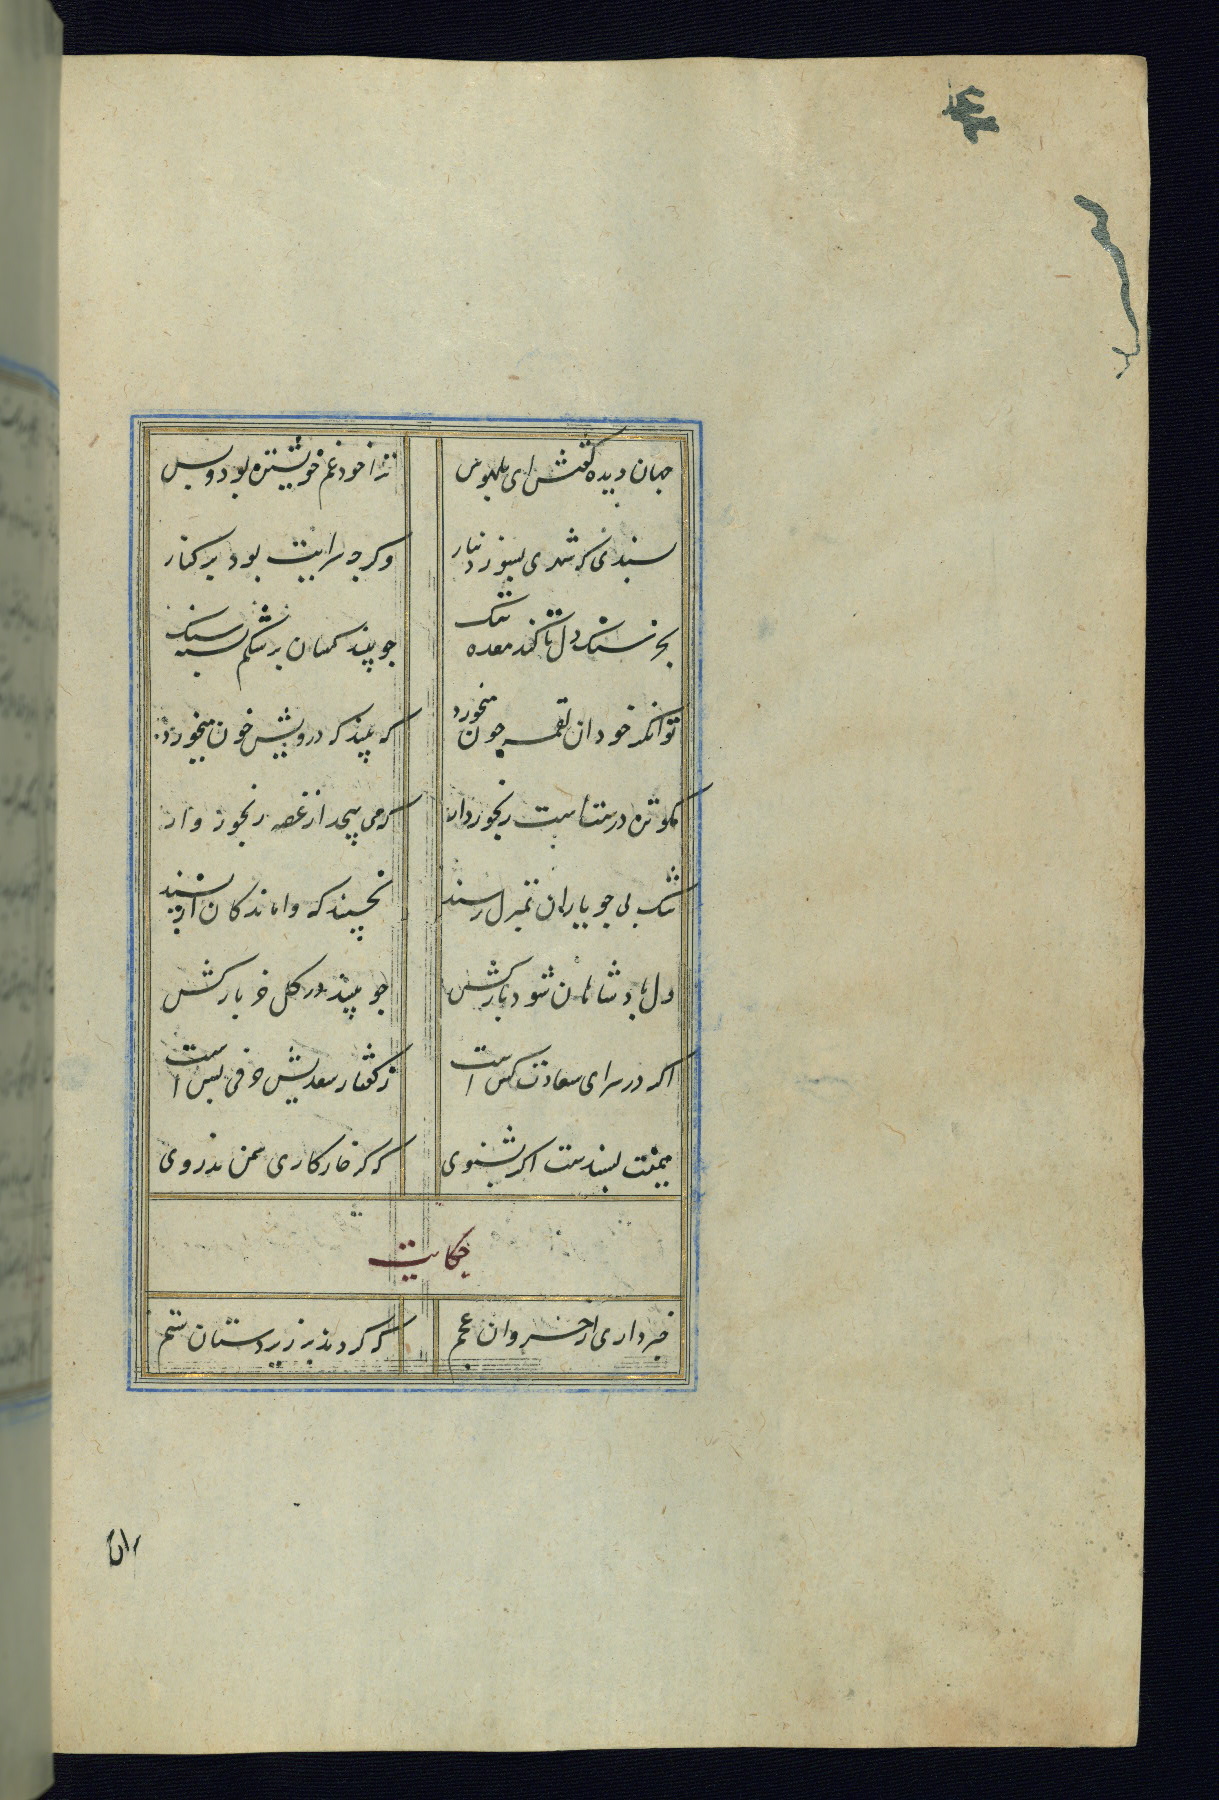 جهان دیده گفتش ای بلهوس ترا خود غم خویشتن بود و بس
پسندی که شهری بسوزد بنار وکرچه سرایت بود بر کنار
بجز سنکدل تا کند معده تنک چو بیند کسان بر شکم بسته سنک
توانکر خود ان لقمه چون میخورد که بیند که درویش خون میخورد
مکو تندرستست رنجوردار که می پیچد از غصه رنجوروار
تنک پی چو یاران بمنزل رسند نخسپند که واماندکان از پسند
دل پادشاهان شود بارکش چو بینند در کل خر بارکش
اکر در سرای سعادت کس است ز کفتار سعدیش حرفی بس است
همینت بسندست اکر بشنوی که کر خار کاری سمن ندروی
حکایت
خبر داری از خسروان عجم که کردند بر زیردستان ستم